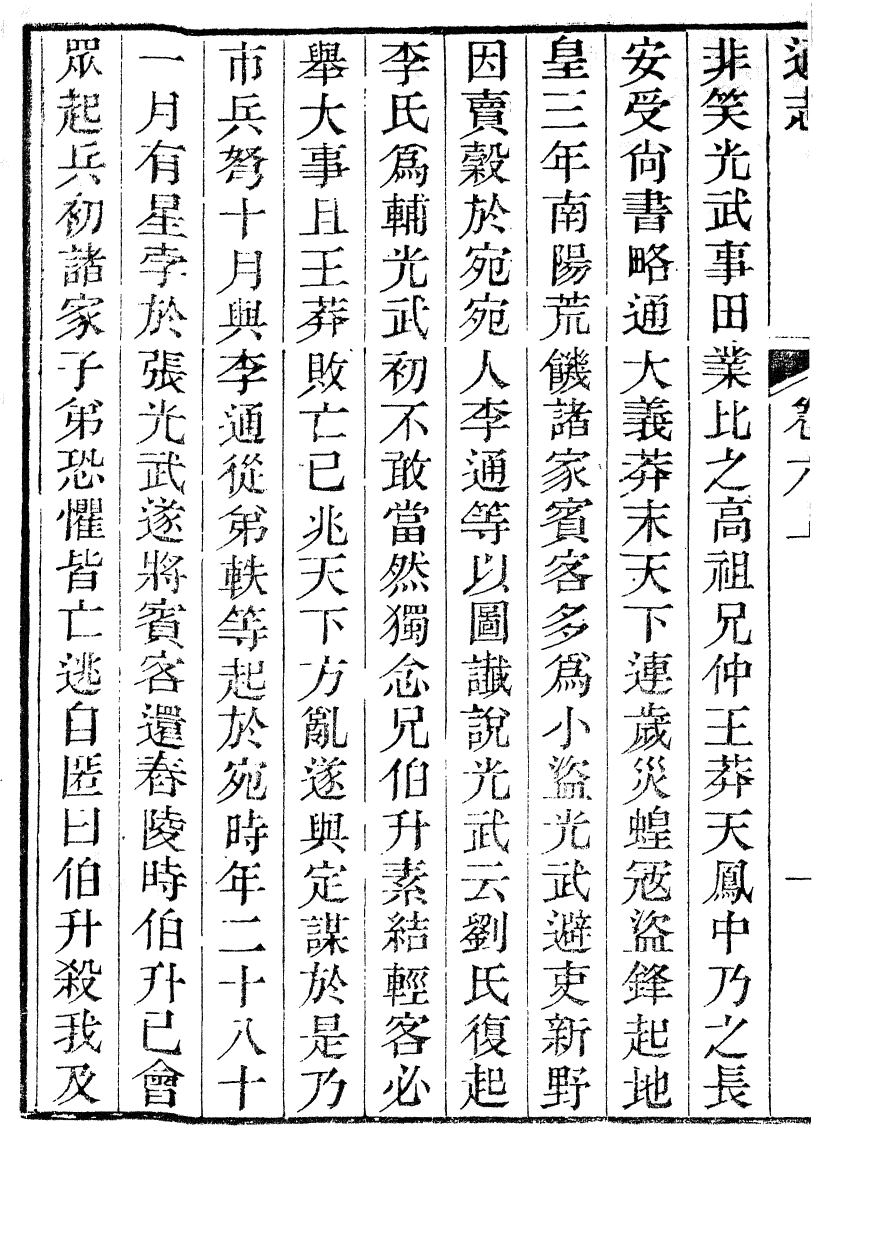 通志　卷六上　一
非笑光武事田業比之高祖兄仲王莽天鳳中乃之長
安受尚書略通大義莽末天下連歲災蝗寇盜鋒起地
皇三年南陽荒饑諸家賓客多爲小盜光武避吏新野
因賣穀於宛宛人李通等以圖讖說光武云劉氏復起
李氏爲輔光武初不敢當然獨念兄伯升素結輕客必
舉大事且王莽敗亡已兆天下方亂遂與定謀於是乃
市兵弩十月與李通從弟軼等起於宛時年二十八十
一月有星孛於張光武遂將賓客還舂陵時伯升已會
眾起兵初諸家子弟恐懼皆亡逃自匿曰伯升殺我及